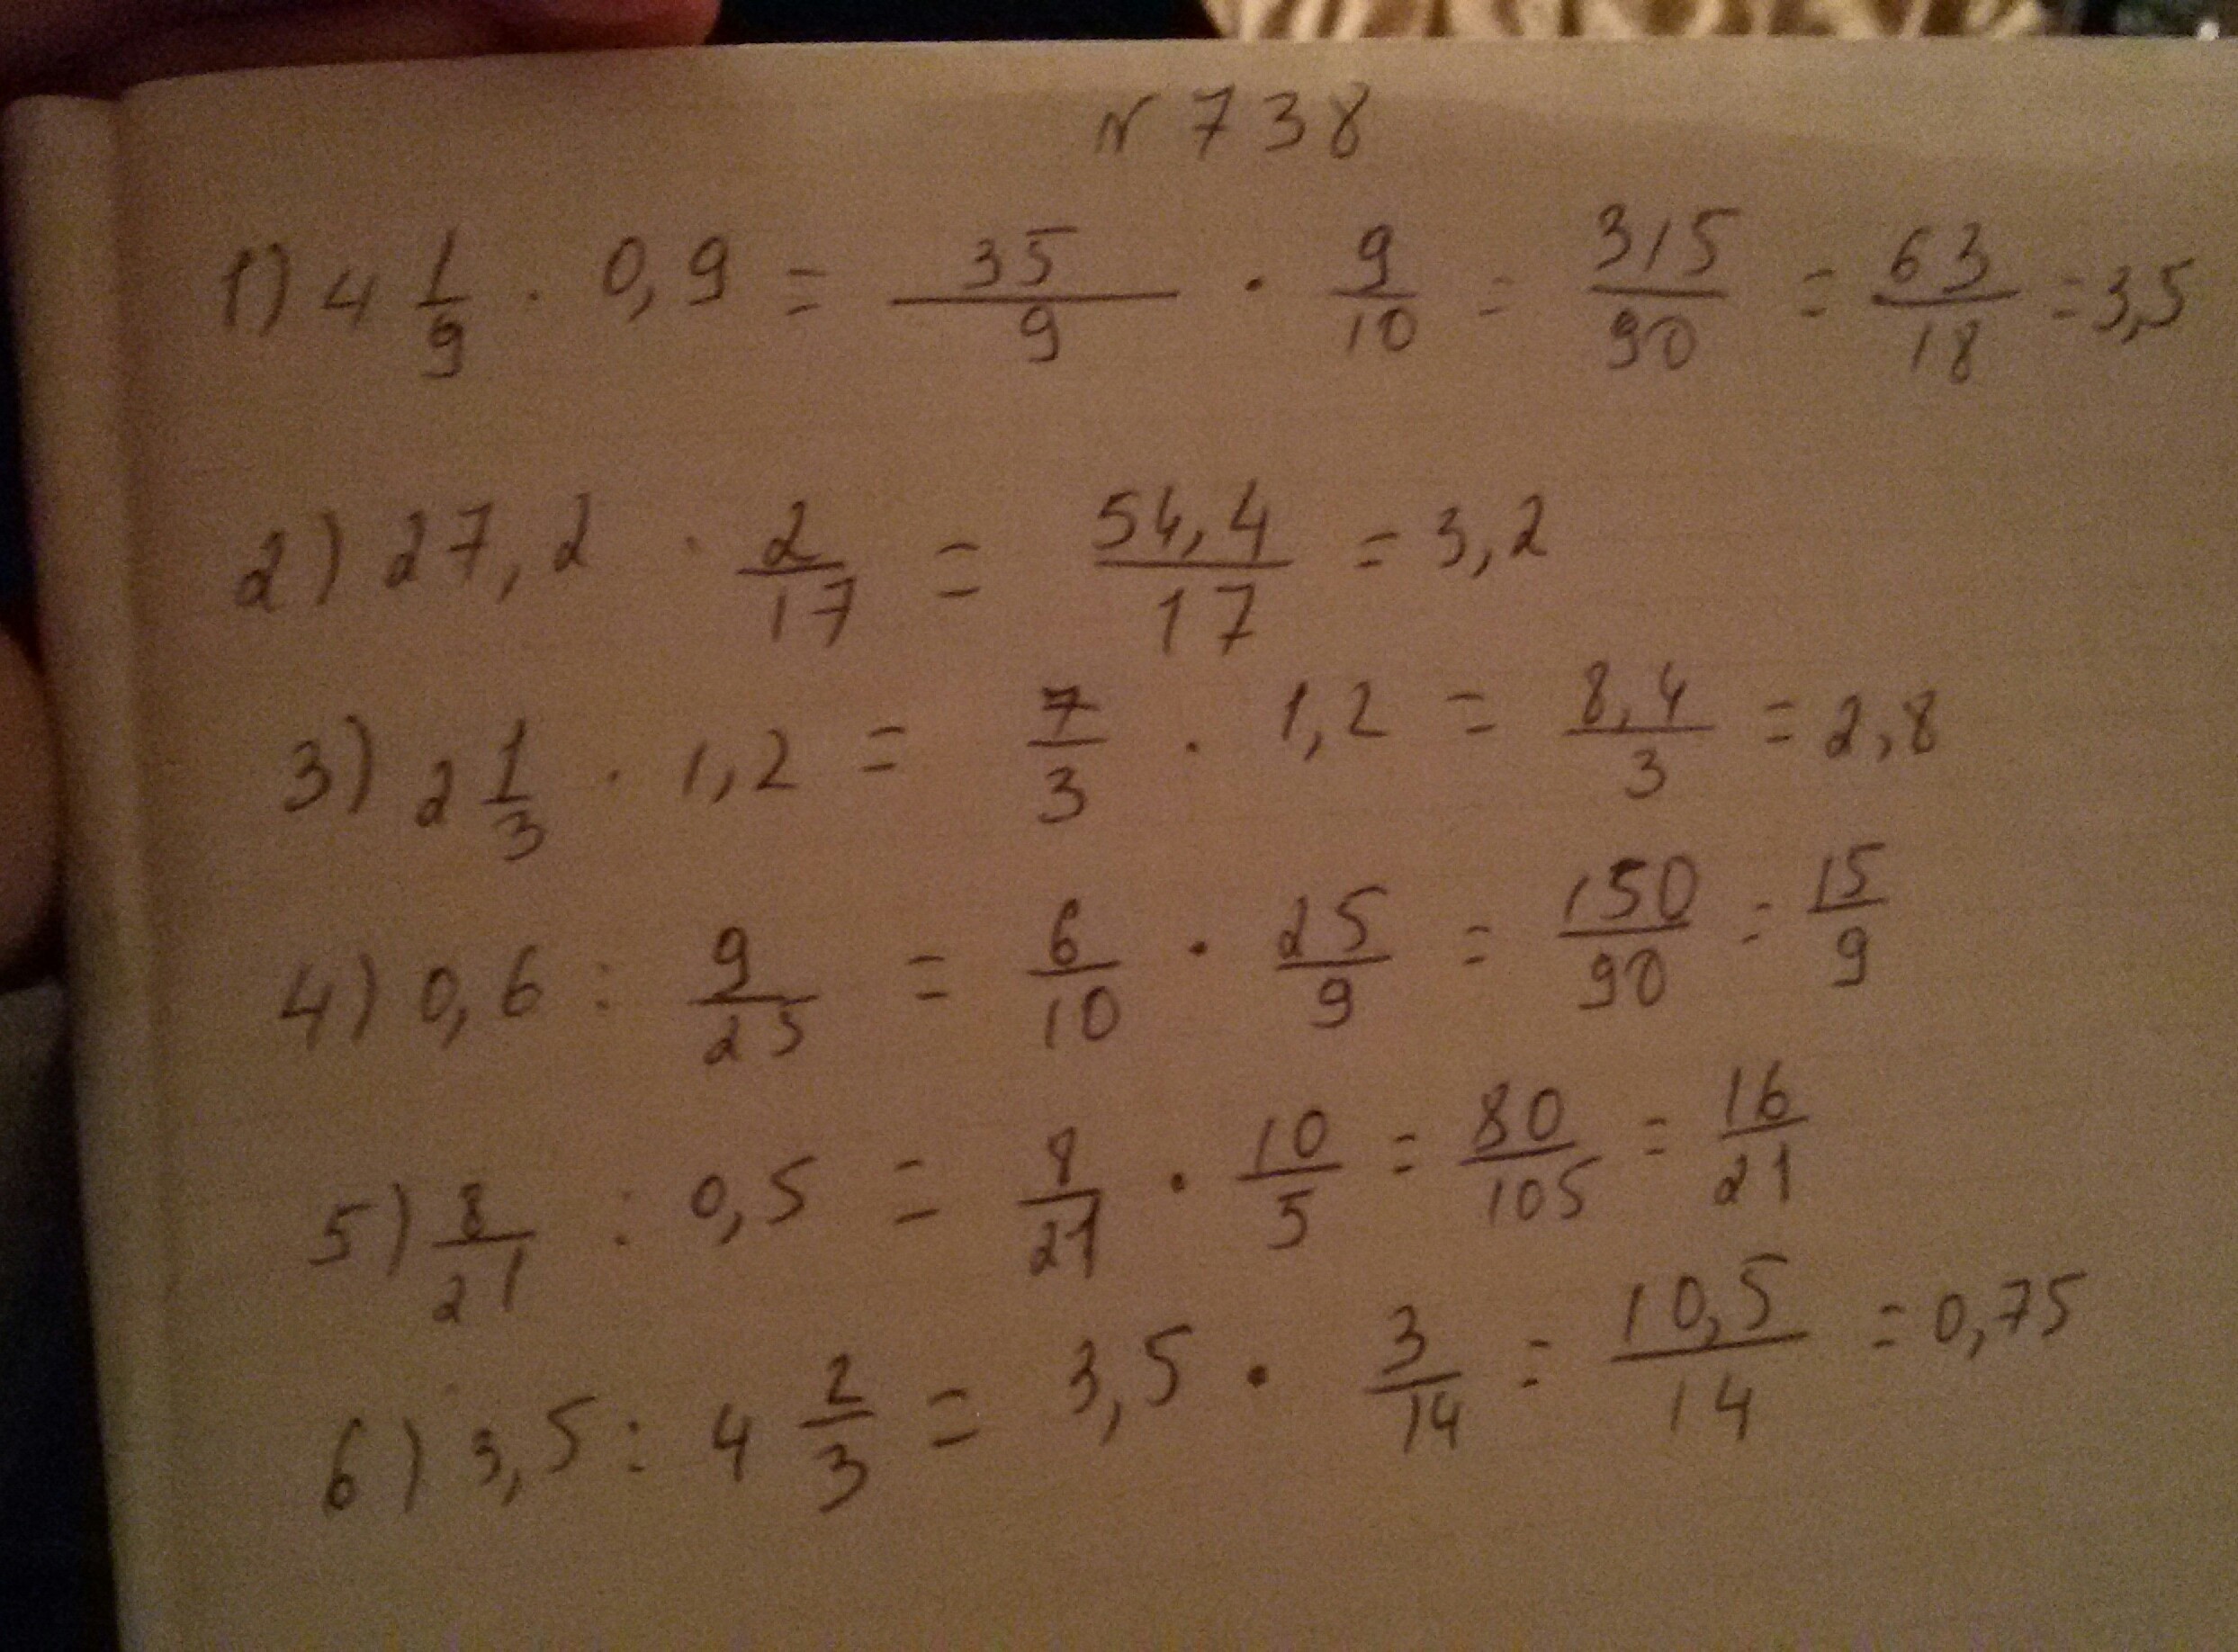 N 738
1) 4 1/9 · 0,9 = 35/9 · 9/10 = 315/90 = 63/18 = 3,5
2) 27,2 · 2/17 = 54,4/17 = 3,2
3) 2 1/3 · 1,2 = 7/3 · 1,2 = 8,4/3 = 2,8
4) 0,6 : 9/25 = 6/10 · 25/9 = 150/90 = 15/9
5) 8/21 : 0,5 = 8/21 · 10/5 = 80/105 = 16/21
6) 3,5 : 4 2/3 = 3,5 · 3/14 = 10,5/14 = 0,75